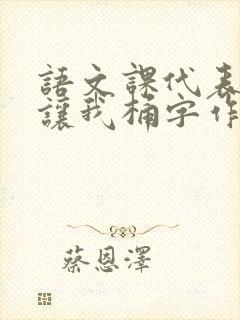 語文課代表
讓我桶字作
蔡恩澤